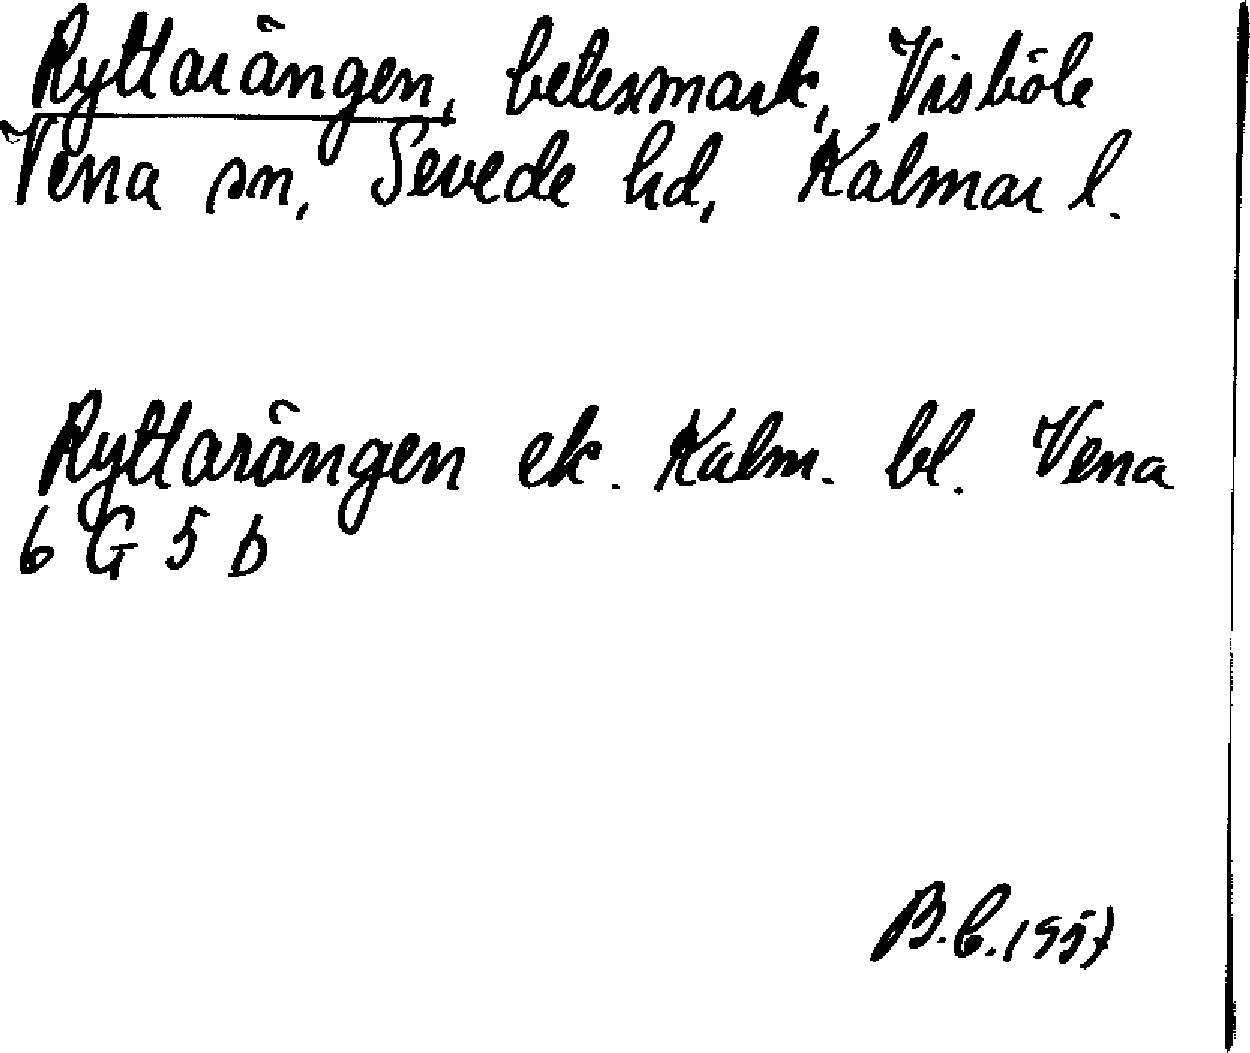 Ryttarängen, betesmark, Visböle
Vena sn, Sevede hd, Kalmar l.
Ryttarängen ek. Kalm. bl. Vena
6 G 5 b
B.C. 1957